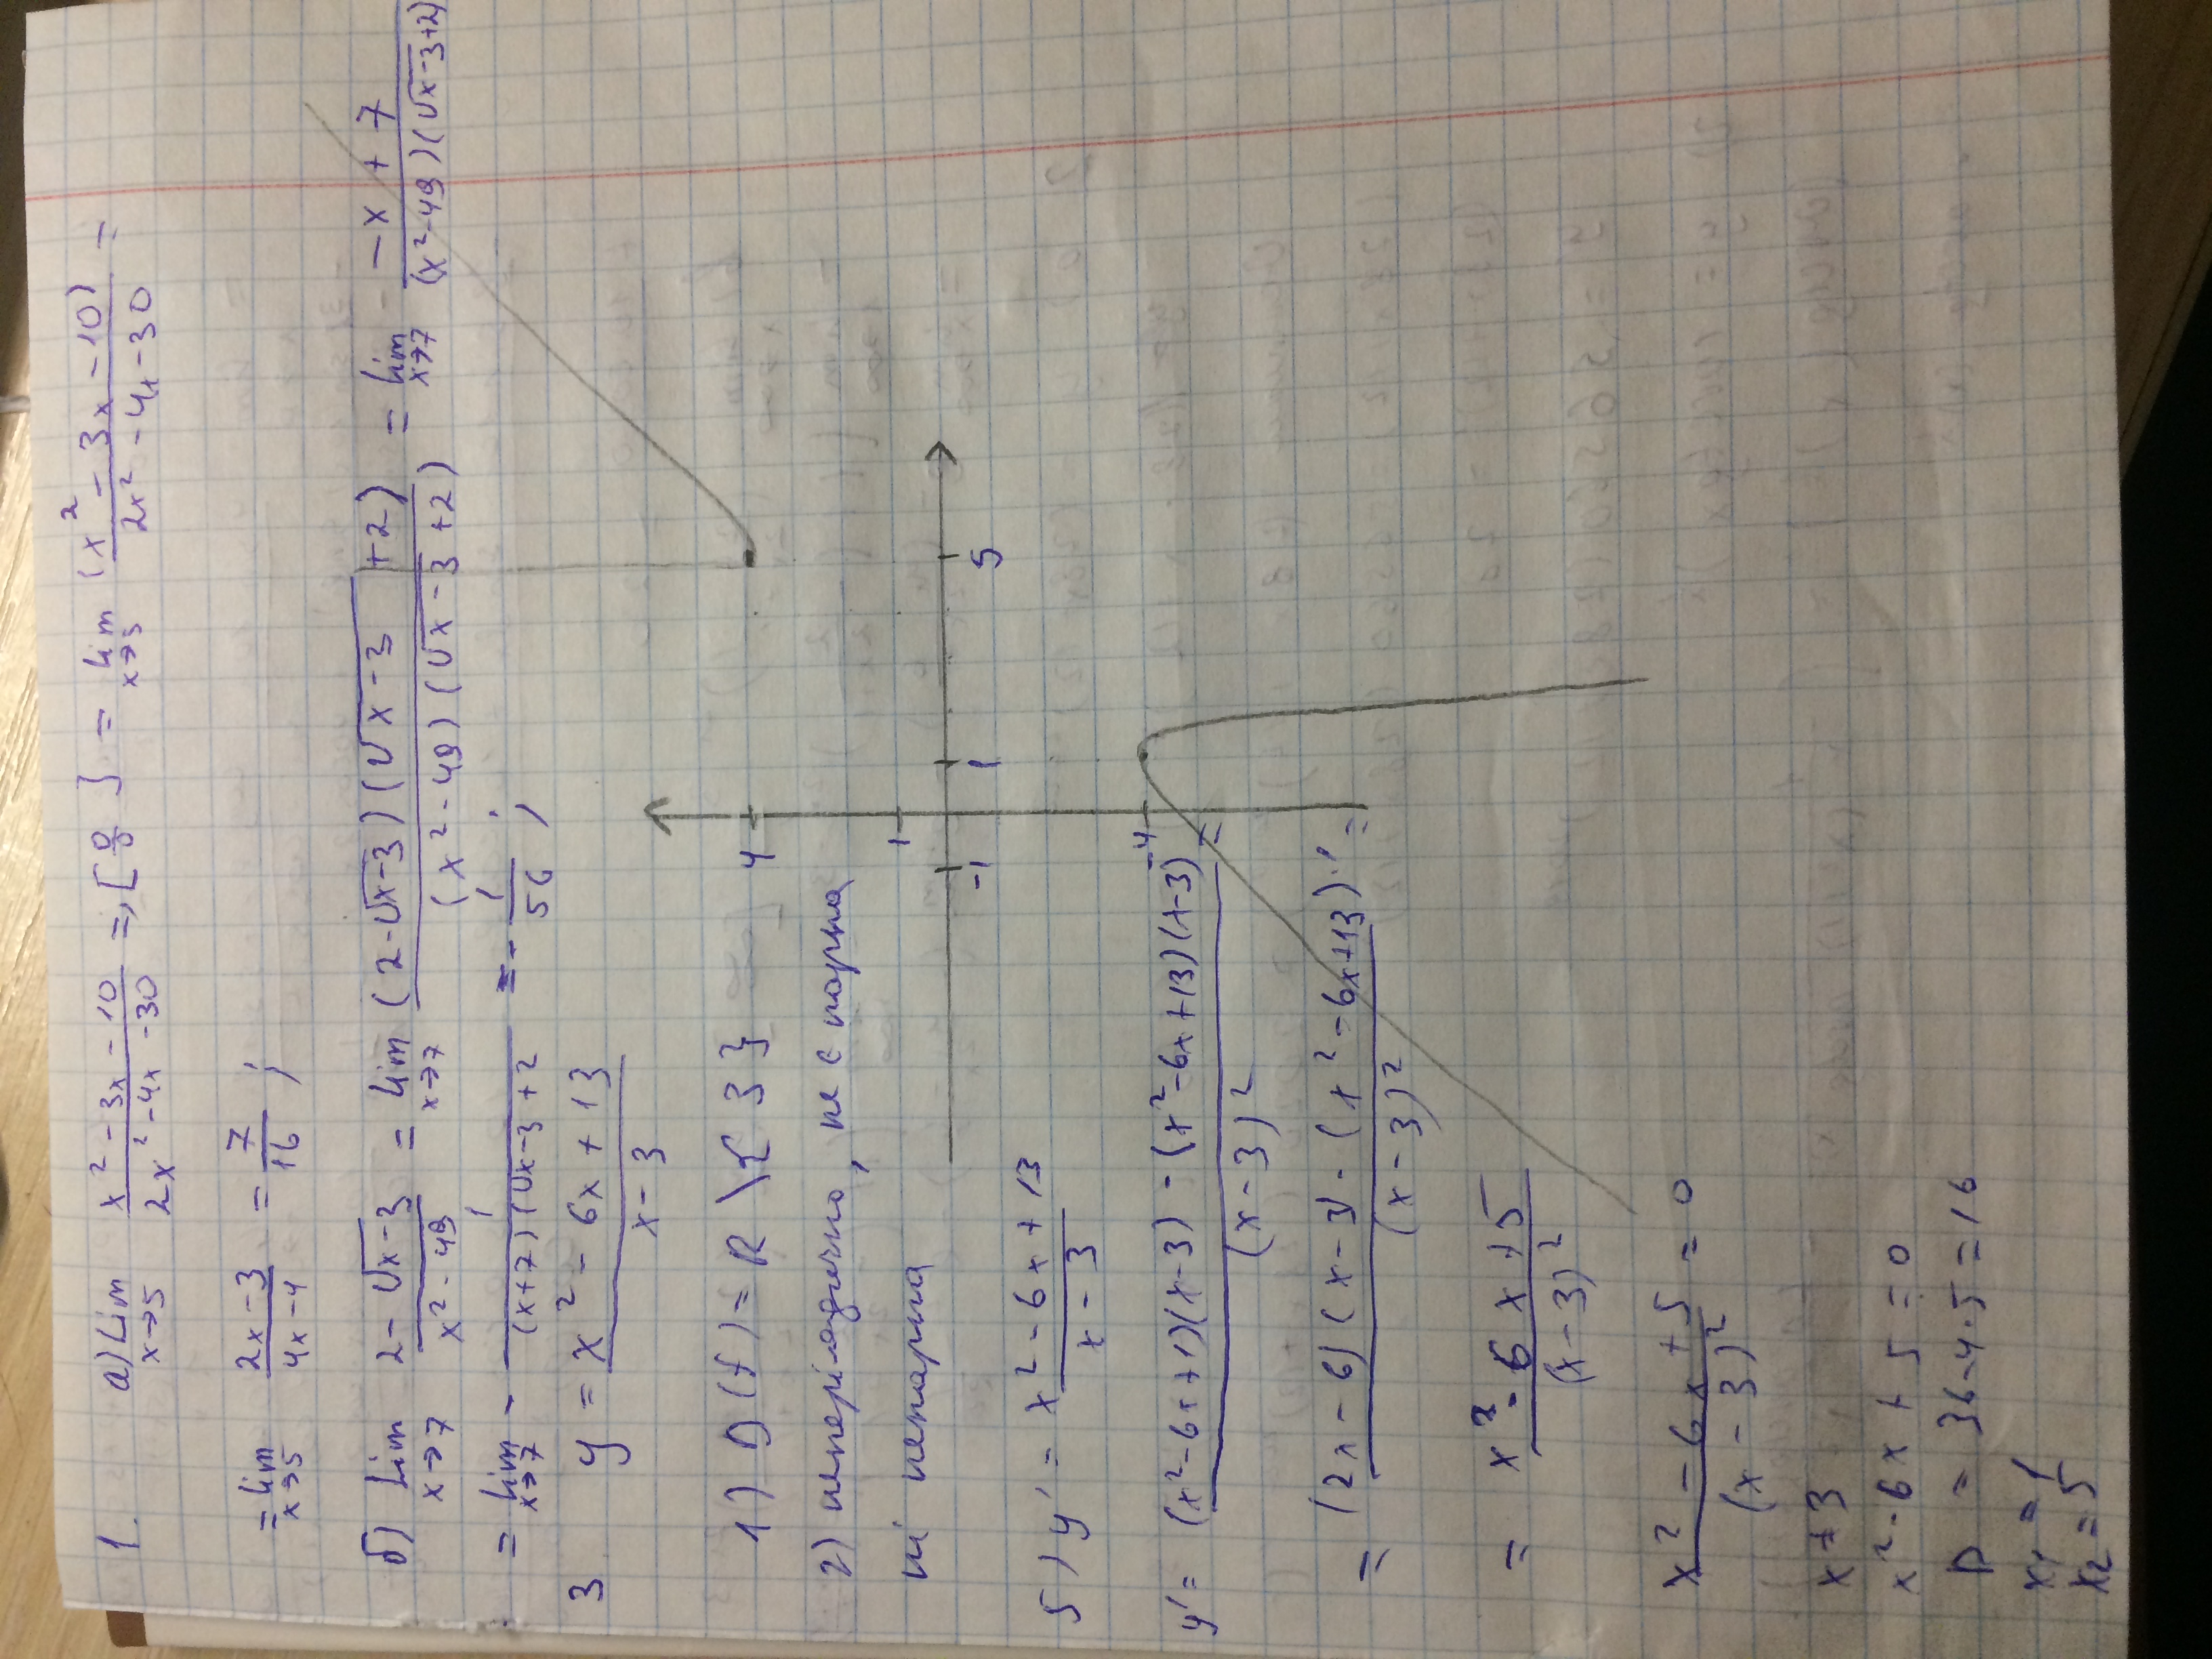 1. а) Lim x→5 (x² - 3x - 10)/(2x² - 4x - 30) =, [0/0] = lim x→5 (x² - 3x - 10)/(2x² - 4x - 30) =
= lim x→5 (2x - 3)/(4x - 4) = 7/16 ;
б) Lim x→7 (2 - √x-3)/(x² - 49) = Lim x→7 (2 - √x-3)(√x-3 + 2)/(x² - 49)(√x-3 + 2) = lim x→7 (-x + 7)/(x² - 49)(√x-3 + 2)
= lim x→7 - 1/(x+7)(√x-3 + 2 = - 1/56 ;
3 y = (x² - 6x + 13)/(x - 3)
1) D(f) = R \ { 3 }
2) неперіодично, не є парна
ні непарна
4
1
-1 1 5
-4
5) y' = (x² - 6x + 13)/(x - 3)
y' = (x² - 6x + 1)(x - 3) - (x² - 6x + 13)(x - 3)/(x - 3)² =
= (2x - 6)(x - 3) - (x² - 6x + 13)·1/(x - 3)² =
= x² - 6x + 5/(x - 3)²
x² - 6x + 5/(x - 3)² = 0
x ≠ 3
x² - 6x + 5 = 0
D = 36 - 4·5 = 16
x₁ = 1
x₂ = 5